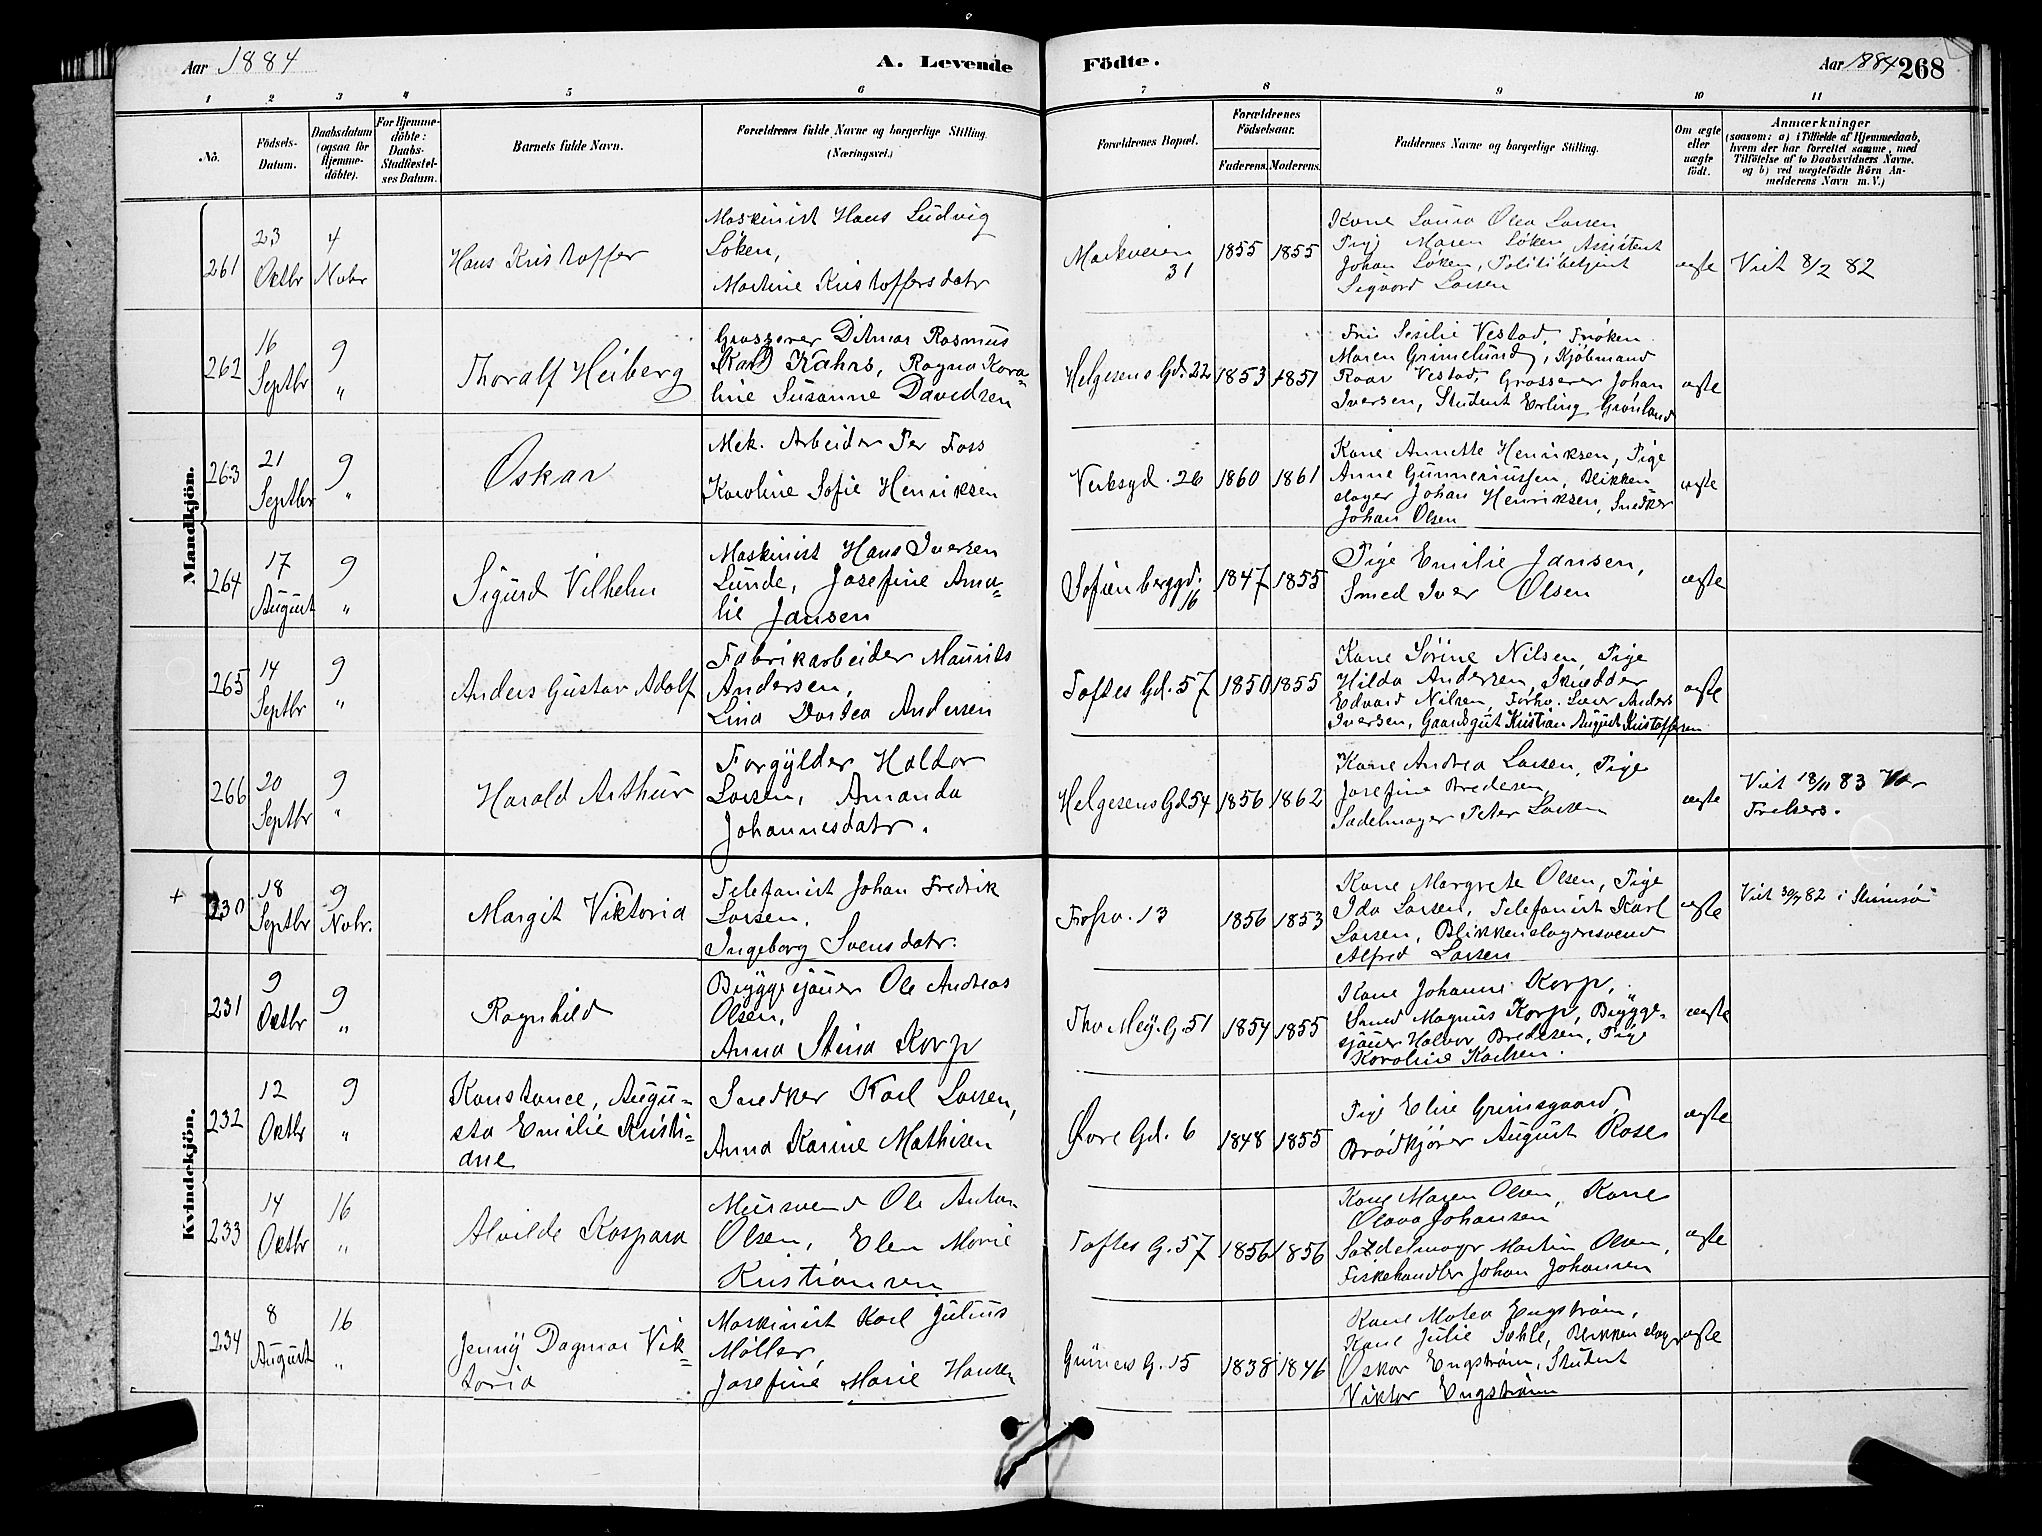 Aar 1884
A. Levende
Födte.
Aar 1884 268
1 2 3 4 5 6 7 8 9 10 11
No.
Födsels-
Datum.
Daabsdatum
(ogsaa for
Hjemme-
döbte).
For Hjemme-
döbte:
Daabs-
Stadfæstel-
ses Datum.
Barnets fulde Navn.
Forældrenes fulde Navne og borgerlige Stilling.
(Næringsvei.)
Forældrenes Bopæl.
Forældrenes
Födselsaar.
Faderens. Moderens.
Faddernes Navne og borgerlige Stilling.
Om ægte
eller
uægte
født.
Anmærkninger
(saasom: a) i Tilfælde af Hjemmedaab,
hvem der har forrettet samme, med
Tilföielse af to Daabsvidners Navne,
og b) ved uægtefödte Börn An-
melderens Navn m. V.)
Mandkjön.
261
23
Oktbr
4
Novbr
Hans Kristoffer
Maskinist Hans Ludvig
Søken,
Martine Kristoffersdatr
Markveien
31
1855 1855
Kone Laura Olea Larsen
Pige Maren Søken, Assistent
Johan Søken, Politibetjent
Sigvard Larsen
ægte
Viet 8/2 82
262
16
Septbr
9
"
Thoralf Heiberg
Grosserer Ditmar Rasmus
Karl Kahrs, Ragna Kora-
line Susanne Davidsen
Helgesens Gd. 22
1853 1851
Fru Sesilie Vestad, Frøken
Maren Grimelund, Kjøbmand
Roar Vestad, Grosserer Johan
Iversen, Student Erling Grønland
ægte
263
21
Septbr
9
"
Oskar
Mek. Arbeider Per Foss
Karoline Sofie Henriksen
Verksgd. 26
1860 1861
Kone Annette Henriksen, Pige
Anne Gunneriussen, Blikken
slager Johan Henriksen, Snedker
Johan Olsen
ægte
264
17
August
9
"
Sigurd Vilhelm
Maskinist Hans Iversen
Lunde, Josefine Ama-
lie Jansen
Sofienberggd.
16
1847 1855
Pige Emilie Jansen,
Smed Iver Olsen
ægte
265
14
Septbr
9
"
Anders Gustav Adolf
Fabrikarbeider Maurits
Andersen,
Lina Dortea Andersen
Toftes Gd. 57
1850 1855
Kone Sørine Nilsen, Pige
Hilda Andersen, Skrædder
Edvard Nilsen, Forhv. Lærer Anders
Iversen, Gaardsgut Kristian August Kristoffersen
ægte
266
20
Septbr
9
"
Harald Arthur
Forgylder Haldor
Larsen, Amanda
Johannesdatr.
Helgesens Gd 54
1856 1862
Kone Andrea Larsen, Pige
Josefine Bredesen,
Sadelmager Peter Larsen
ægte
Viet 18/11 83 Vor
Frelsers.
Kvindekjön.
+
230
18
Septbr
9
Novbr.
Margit Viktoria
Telefonist Johan Fredrik
Larsen,
Ingeborg Svensdatr.
Fossv. 13
1856 1853
Kone Margrete Olsen, Pige
Ida Larsen, Telefonist Karl
Larsen, Blikkenslagersvend
Alfred Larsen
ægte
Viet 30/7 82 i
231
9
Oktbr
9
"
Ragnhild
Bryggesjauer Ole Andreas
Olsen,
Anna Stina Korp
Thv Meÿ. G. 51
1854 1855
Kone Johanne Korp,
Smed Magnus Korp, Brygge-
sjauer Halvor Bredesen, Pige
Karoline Karlsen.
ægte
232
12
Oktbr
9
"
Konstance, Augu-
sta Emilie Kristi-
ane
Snedker Karl Larsen,
Anna Karine Mathisen
Øvre Gd. 6
1848 1855
Pige Elise Grimsgaard,
Brødkjører August Rose
ægte
233
14
Oktbr
16
"
Alvilde Kaspara
Mursvend Ole Anton
Olsen, Elen Marie
Kristiansen
Toftes G. 57
1856 1856
Kone Maren Olsen, Kone
Olava Johansen
Sadelmager Martin Olsen,
Fiskehandler Johan Johansen
ægte
234
8
August
16
"
Jenny Dagmar Vik-
toria
Maskinist Karl Julius
Møller,
Josefine Marie Hansen
Grüners G. 15
1838 1846
Kone Matea Engstrøm,
Kone Julie Sæhle, Blikkenslager
Oskar Engstrøm, Student
Viktor Engstrøm
ægte